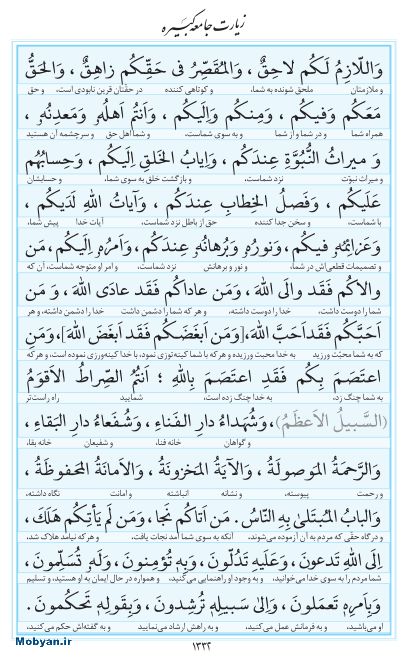 زیارت جامعه کبیره
وَاللّازِمُ لَکُم لاحِقٌ، وَالمُقَصِّرُ فی حَقِّکُم زاهِقٌ، وَالحَقُّ
و ملازمتان ملحق شونده به شما، و کوتاهی کننده در حقتان قرین نابودی است، و حق
مَعَکُم وَفیکُم، وَمِنکُم وَاِلَیکُم، وَاَنتُم اَهلُهُ وَمَعدِنُهُ،
همراه شما و در شما و از شما و به سوی شماست، و شما اهل حق و سرچشمه آن هستید
وَ میراثُ النُّبُوَّةِ عِندَکُم، وَاِیابُ الخَلقِ اِلَیکُم، وَحِسابُهُم
و میراث نبوّت نزد شماست، و بازگشت خلق به سوی شما، و حسابشان
عَلَیکُم، وَفَصلُ الخِطابِ عِندَکُم، وَآیاتُ اللهِ لَدَیکُم،
با شماست، و سخن جدا کننده حق از باطل نزد شماست، آیات خدا پیش شما،
وَعَزائِمُهُ فیکُم، وَنورُهُ وَبُرهانُهُ عِندَکُم، وَاَمرُهُ اِلَیکُم، مَن
و تصمیمات قطعی‌اش در شما، و نور و برهانش نزد شماست، و امر او متوجه شماست، آن که
والاکُم فَقَد والَی اللهَ، وَمَن عاداکُم فَقَد عادَی اللهَ، وَ مَن
شما را دوست داشت، خدا را دوست داشته، و هر که شما را دشمن داشت خدا را دشمن داشته، و هر
اَحَبَّکُم فَقَد اَحَبَّ اللهَ، [وَمَن اَبغَضَکُم فَقَد اَبغَضَ اللهَ]، وَمَنِ
که به شما محبّت ورزید به خدا محبت ورزیده و هرکه با شما کینه‌توزی نمود، با خدا کینه‌ورزی نموده است، و هر که
اعتَصَمَ بِکُم فَقَدِ اعتَصَمَ بِاللهِ؛ اَنتُمُ الصِّراطُ الاَقوَمُ
به شما چنگ زد، به خدا چنگ زده است، شمایید راه راست‌تر
(السَّبیلُ الاَعظَمُ)، وَشُهَداءُ دارِ الفَناءِ، وَشُفَعاءُ دارِ البَقاءِ،
و گواهان خانه فنا، و شفیعان خانه بقا،
وَالرَّحمَةُ المَوصولَةُ، وَالآیَةُ المَخزونَةُ، وَالاَمانَةُ المَحفوظَةُ،
و رحمت پیوسته، و نشانه انباشته و امانت نگاه داشته،
وَالبابُ المُبتَلیٰ بِهِ النّاسُ. مَن اَتاکُم نَجا، وَمَن لَم یَأتِکُم هَلَکَ،
و درگاه حقّی که مردم به آن آزموده می‌شوند، آنکه به سوی شما آمد نجات یافت، و هرکه نیامد هلاک شد،
اِلَی اللهِ تَدعونَ، وَعَلَیهِ تَدُلّونَ، وَبِهِ تُؤمِنونَ، وَلَهُ تُسَلِّمونَ،
شما مردم را به سوی خدا می‌خوانید، و به وجود او راهنمایی می‌کنید، و همواره در حال ایمان به او هستید، و تسلیم
وَبِاَمرِهِ تَعمَلونَ، وَاِلیٰ سَبیلِهِ تُرشِدونَ، وَبِقَولِهِ تَحکُمونَ.
او می‌باشید، و به فرمانش عمل می‌کنید، و به راهش ارشاد می‌نمایید و به گفته‌اش حکم می‌کنید،
Mobyan.ir
۱۳۳۲